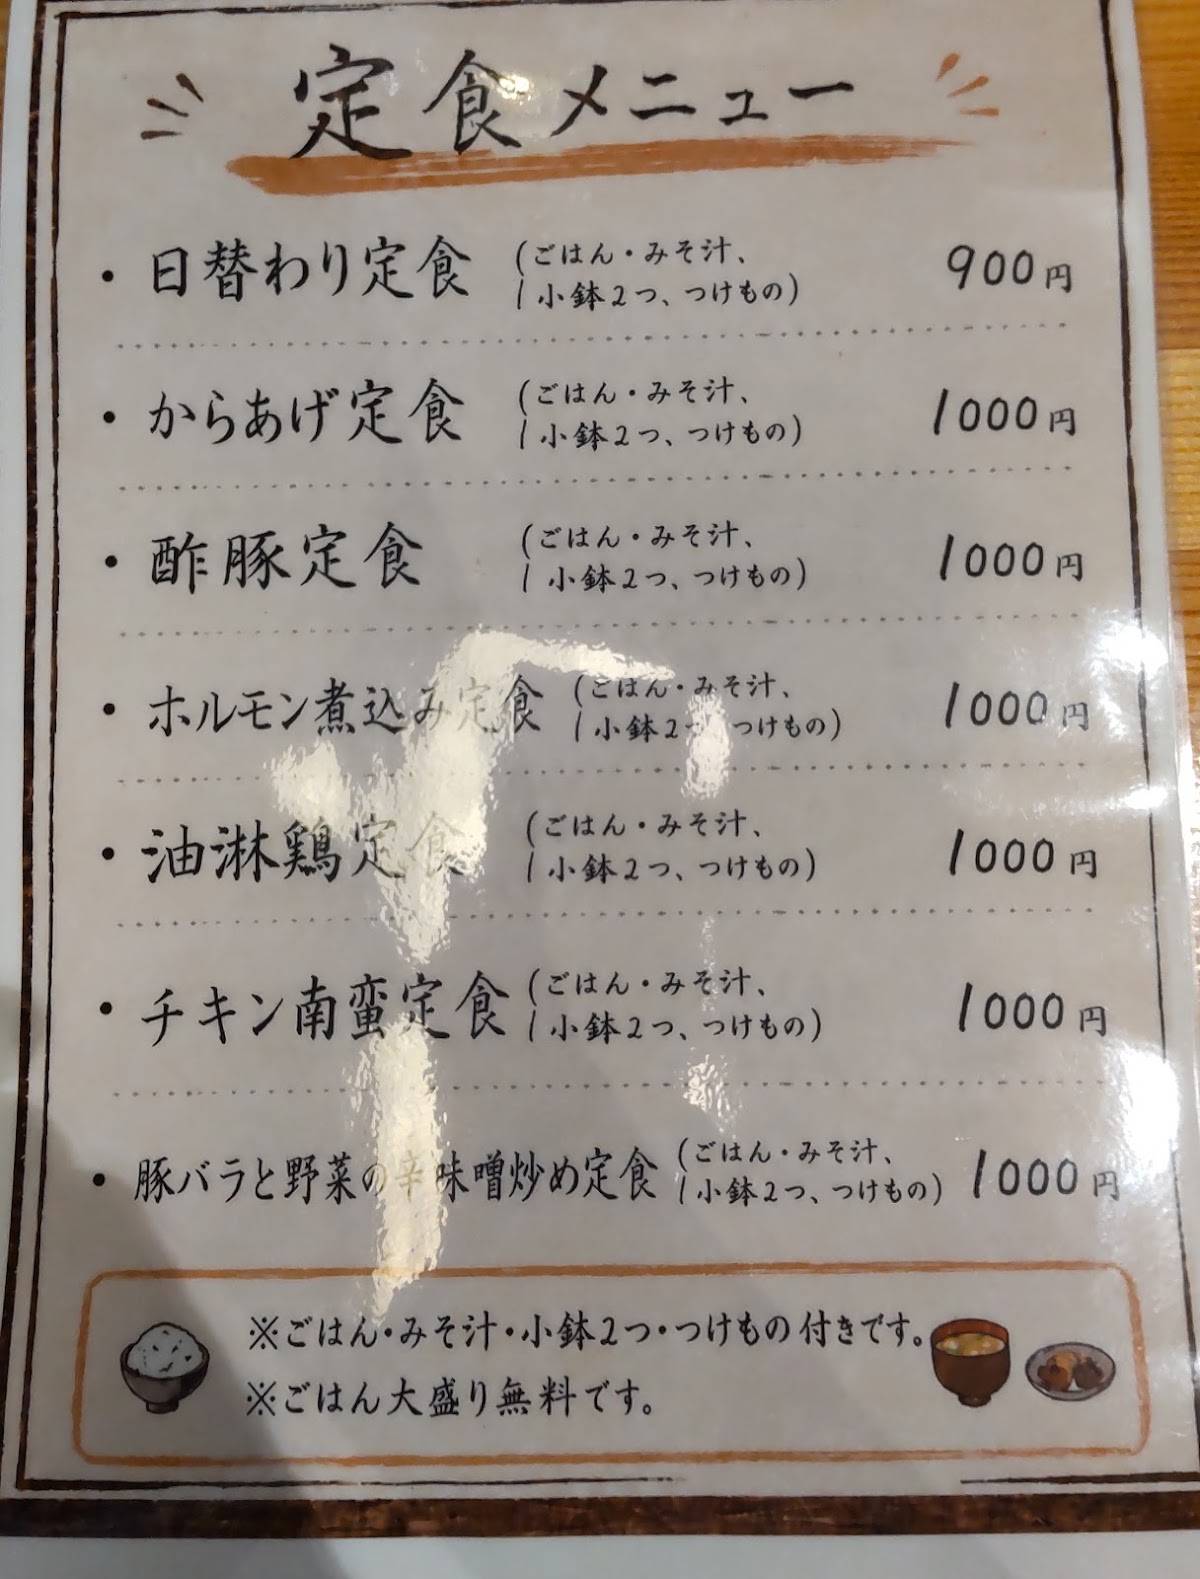 定食メニュー
・日替わり定食 (ごはん・みそ汁、小鉢2つ、つけもの) 900円
・からあげ定食 (ごはん・みそ汁、小鉢2つ、つけもの) 1000円
・酢豚定食 (ごはん・みそ汁、小鉢2つ、つけもの) 1000円
・ホルモン煮込み定食 (ごはん・みそ汁、小鉢2つ、つけもの) 1000円
・油淋鶏定食 (ごはん・みそ汁、小鉢2つ、つけもの) 1000円
・チキン南蛮定食 (ごはん・みそ汁、小鉢2つ、つけもの) 1000円
・豚バラと野菜の辛味噌炒め定食 (ごはん・みそ汁、小鉢2つ、つけもの) 1000円
※ごはん・みそ汁・小鉢2つ・つけもの付きです。
※ごはん大盛り無料です。